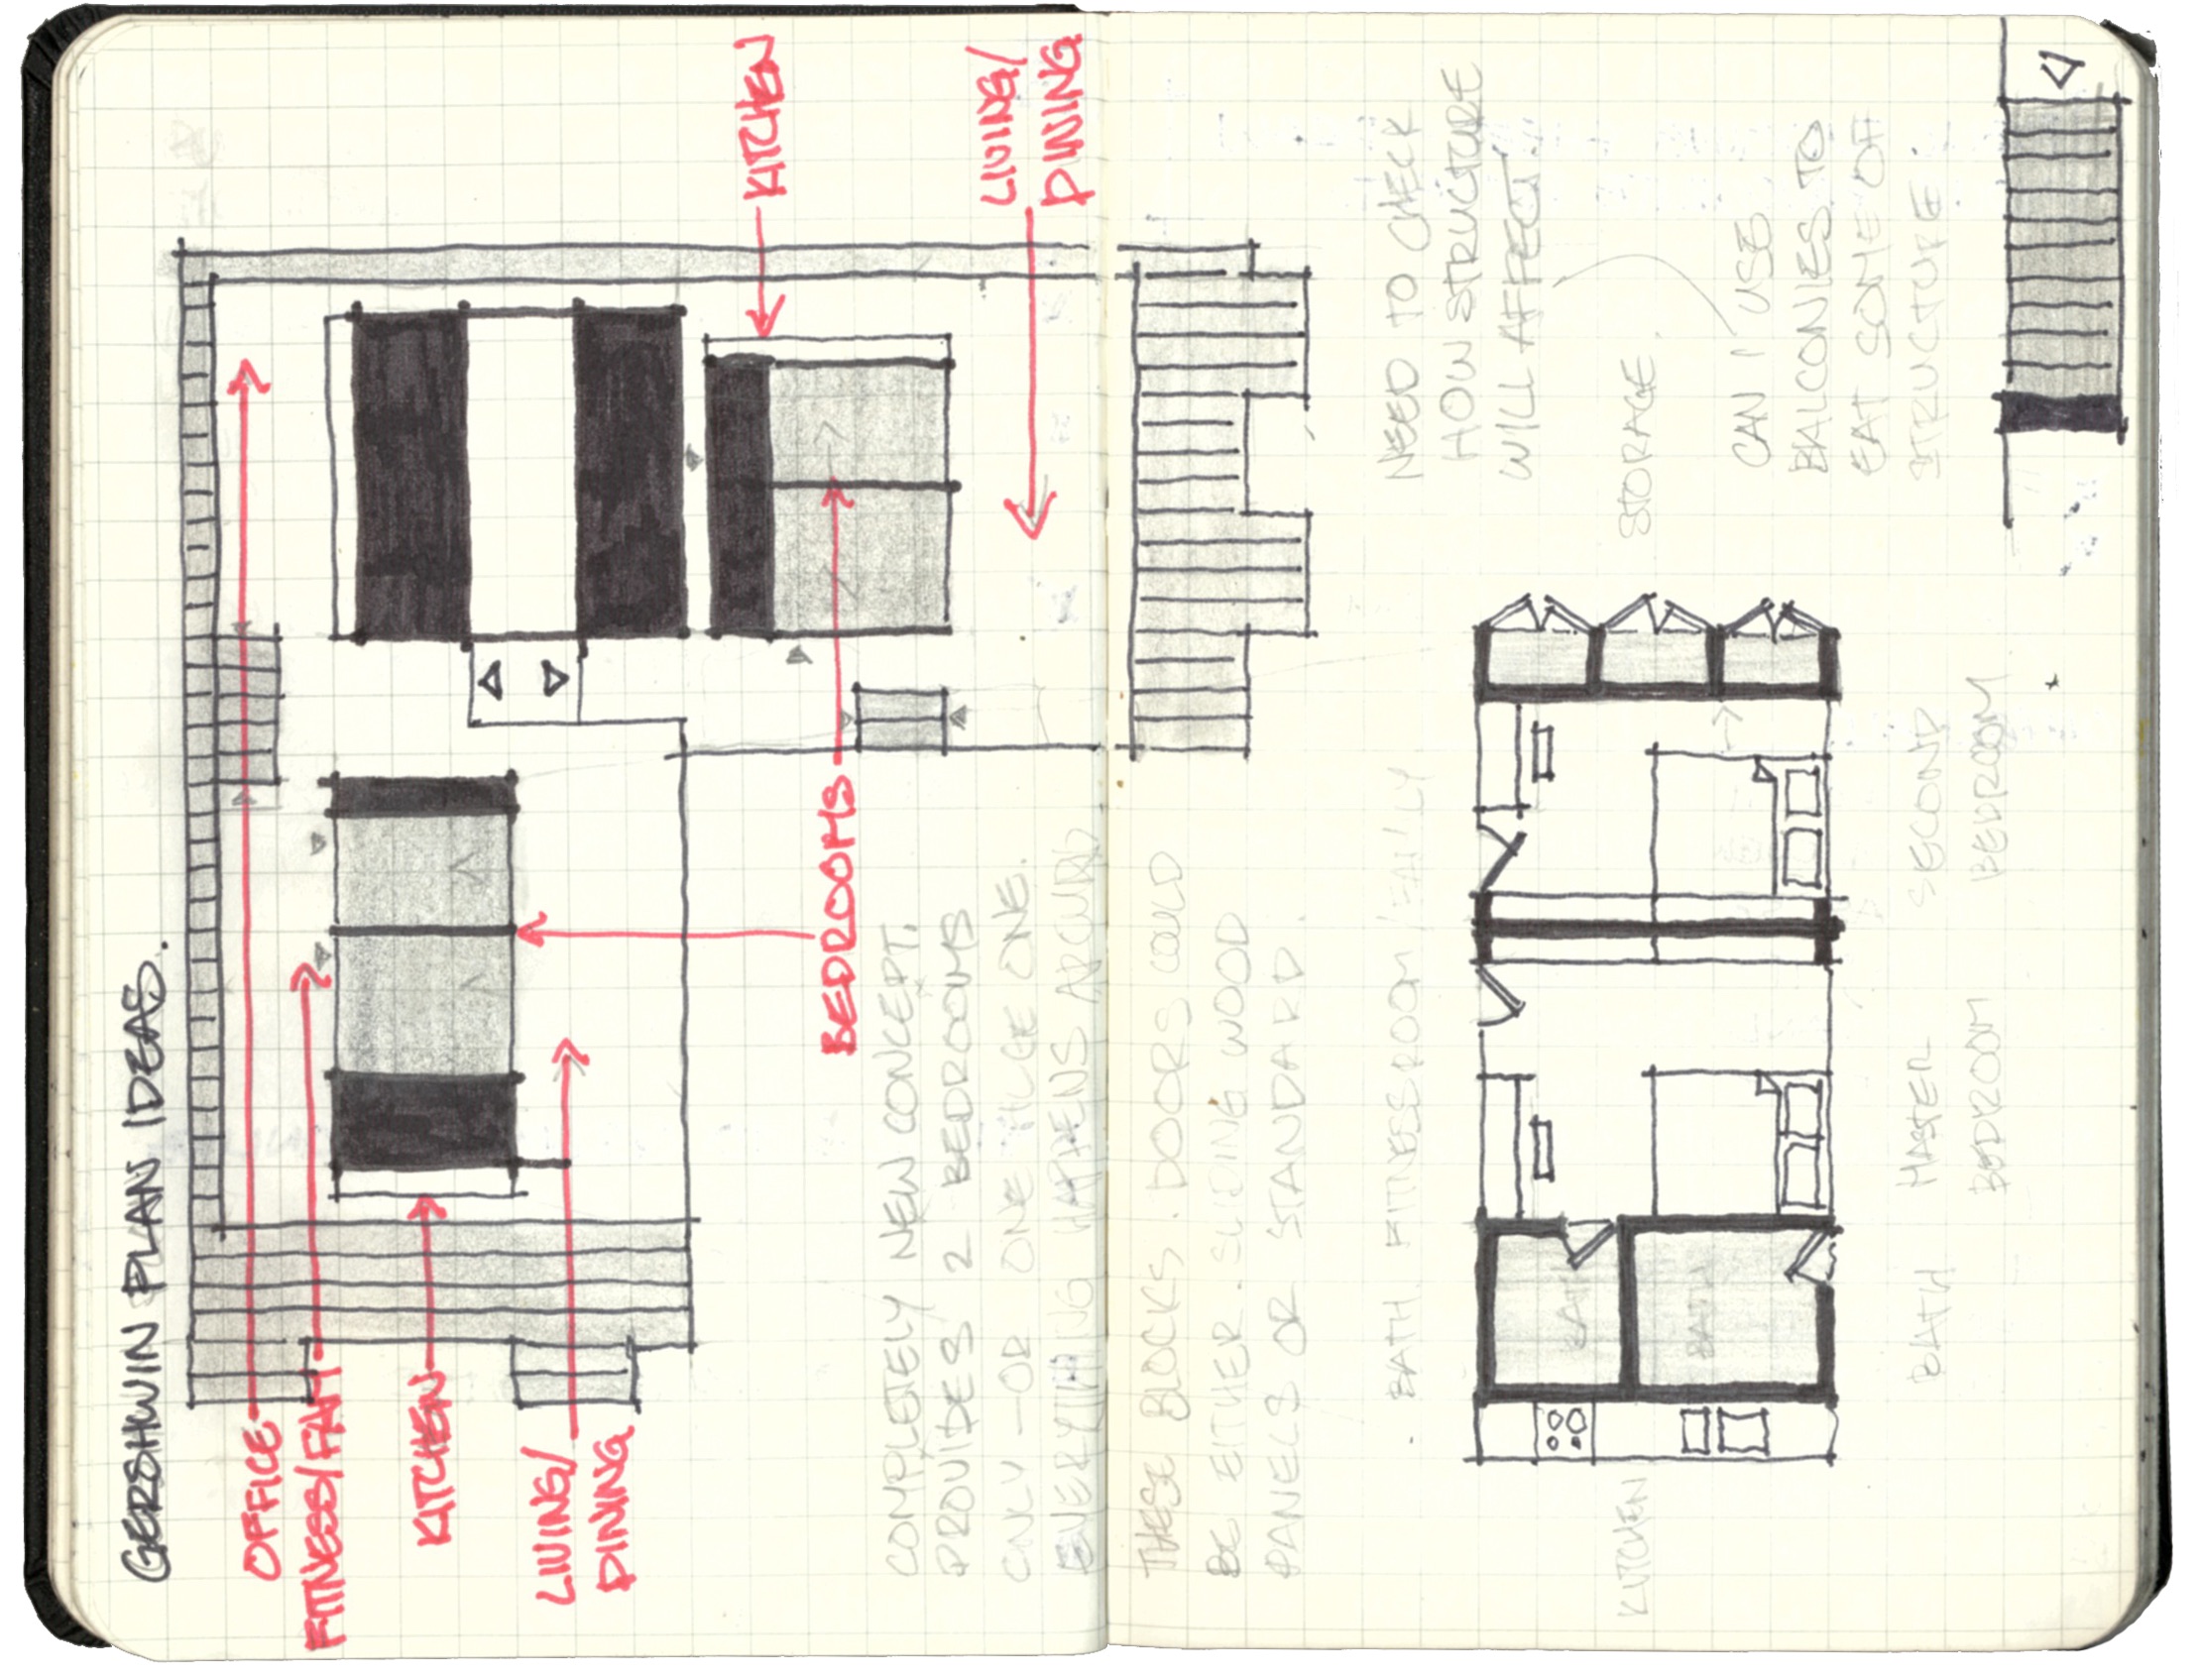 GERSHWIN PLAN IDEAS.
OFFICE
FITNESS/FAM
KITCHEN
LIVING/
DINING
BEDROOMS
KITCHEN
LIVING/
DINING
COMPLETELY NEW CONCEPT.
PROVIDES 2 BEDROOMS
ONLY - OR ONE HUGE ONE.
EVERYTHING HAPPENS AROUND
THESE BLOCKS. DOORS COULD
BE EITHER SLIDING WOOD
PANELS OR STANDARD.
NEED TO CHECK
HOW STRUCTURE
WILL AFFECT
STORAGE.
CAN I USE
BALCONIES TO
EAT SOME OF
STRUCTURE.
BATH. FITNESS ROOM/FAMILY
BATH
BATH
KITCHEN
BATH
MASTER
BEDROOM
SECOND
BEDROOM